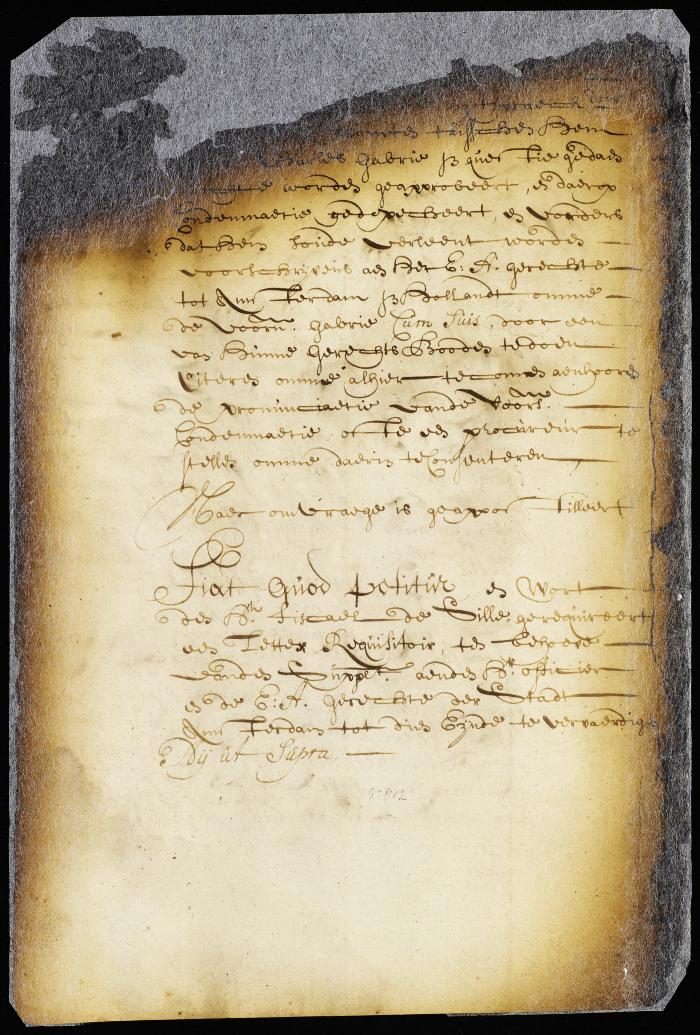 tusschen hem
Charles Gabrie
worden geapprobeert, en daerop
Condemnatie gedepecheert, en vorders
dat hem soude verleent worden
voorschrijvens aen het E: A. gerechte
tot Amsterdam in Hollandt omme
de voorn. Gabrie Cum Suis, door een
van hunne Gerechts Booden te doen
Citeren omme alhier te comen aenhooren
de pronunciatie vande voors.
Condemnatie, ofte een procureur te
stellen omme daerin te Consenteren
is geappostilleert
Fiat Quod petitur, en Wort
den Hr. Fiscael de Sille, gerequireert
een Letter Requisitoir, ten behoeve
vanden Supplt. aenden Hr. officier
en de E: A. Gerechte der Stadt
Amsterdam tot dien Eynde te vervaerdigen
Dij ut Supra